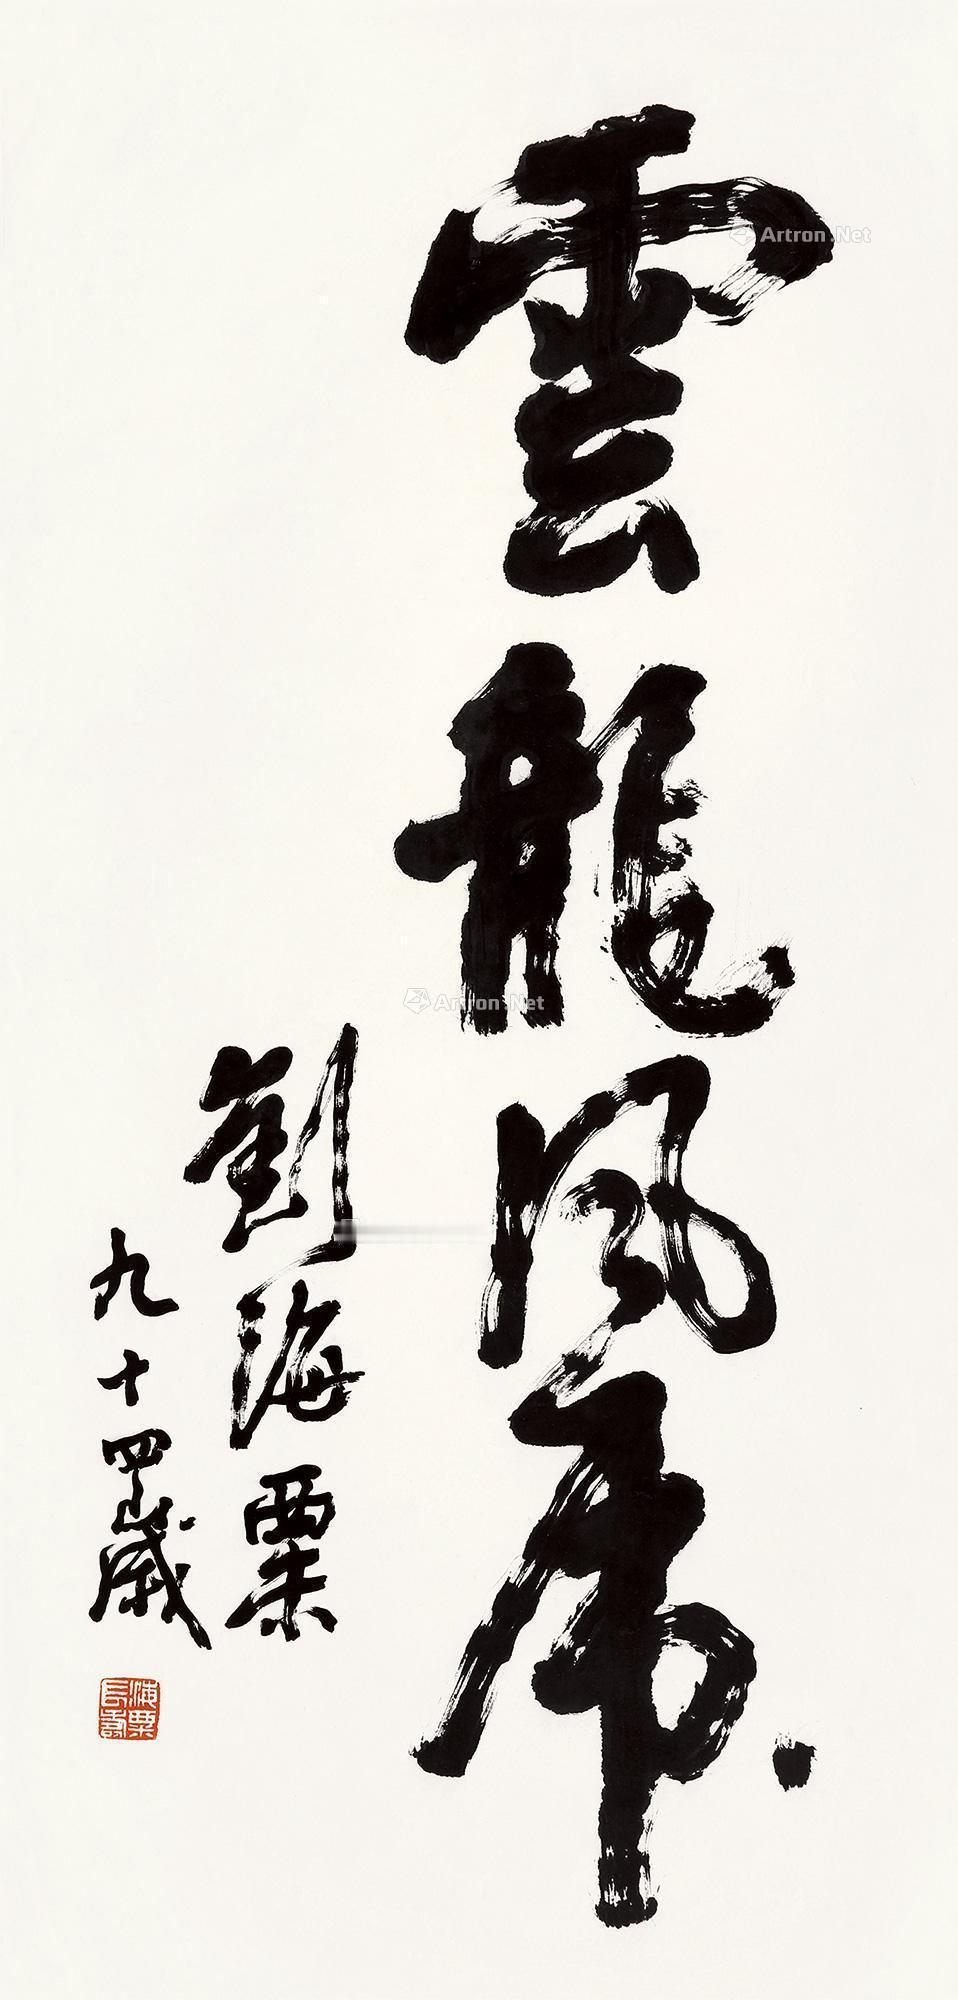 雲龍風虎
劉海粟
九十四歲
海粟
長壽
Artron.Net
Artron.Net